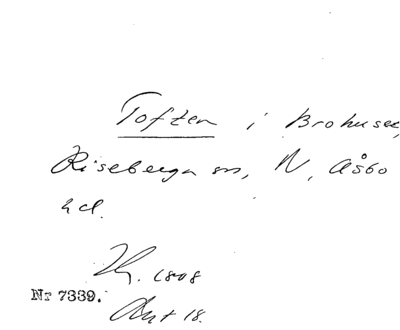 Toften i Brohuset,
Riseberga sn, N. Åsbo
hd.
Hf. 1808
Nr 7339.
Avt 18.